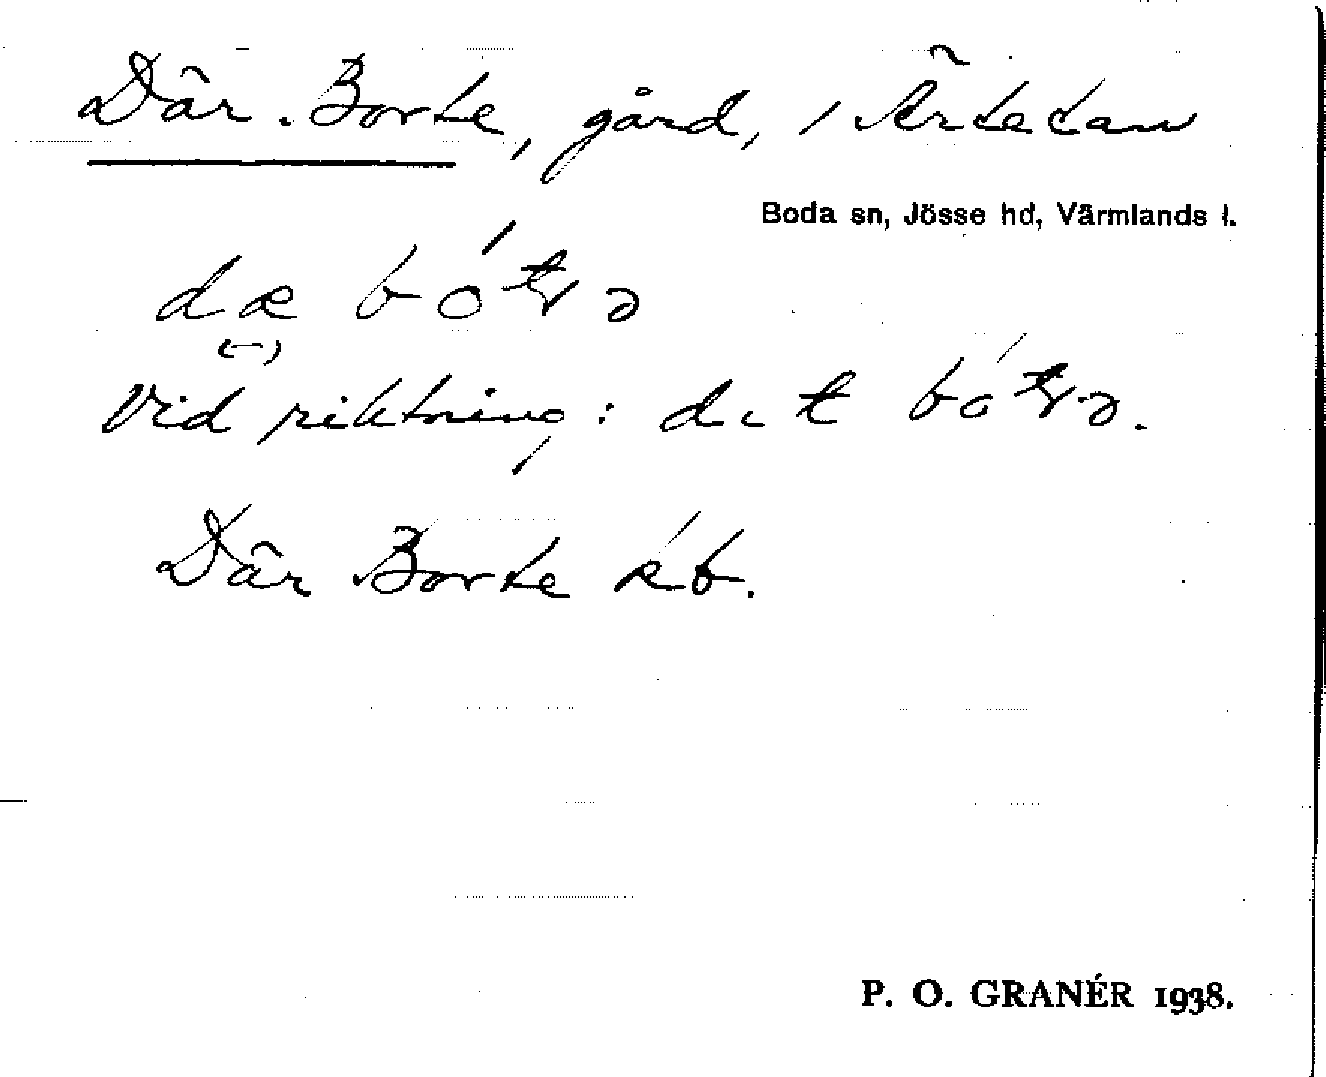 Där Borte, gård, i Ärtetan
Boda sn, Jösse hd, Värmlands l.
dæ bót ə
(-)
Vid riktning: dit bót ə.
Där Borte kb.
P. O. GRANÉR 1938.